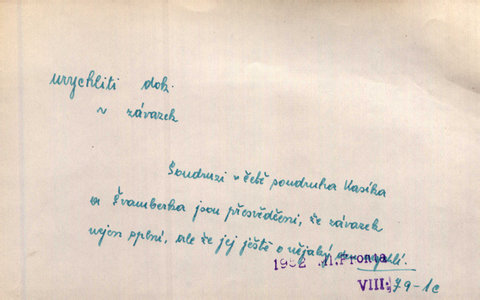 urychliti dok.
v závazek
Soudruzi v četě soudruha Kasíka
a Švamberka jsou přesvědčeni, že závazek
nejen splní, ale že jej ještě o nějaký
1952 M.Fronta
VIII. 79-1c